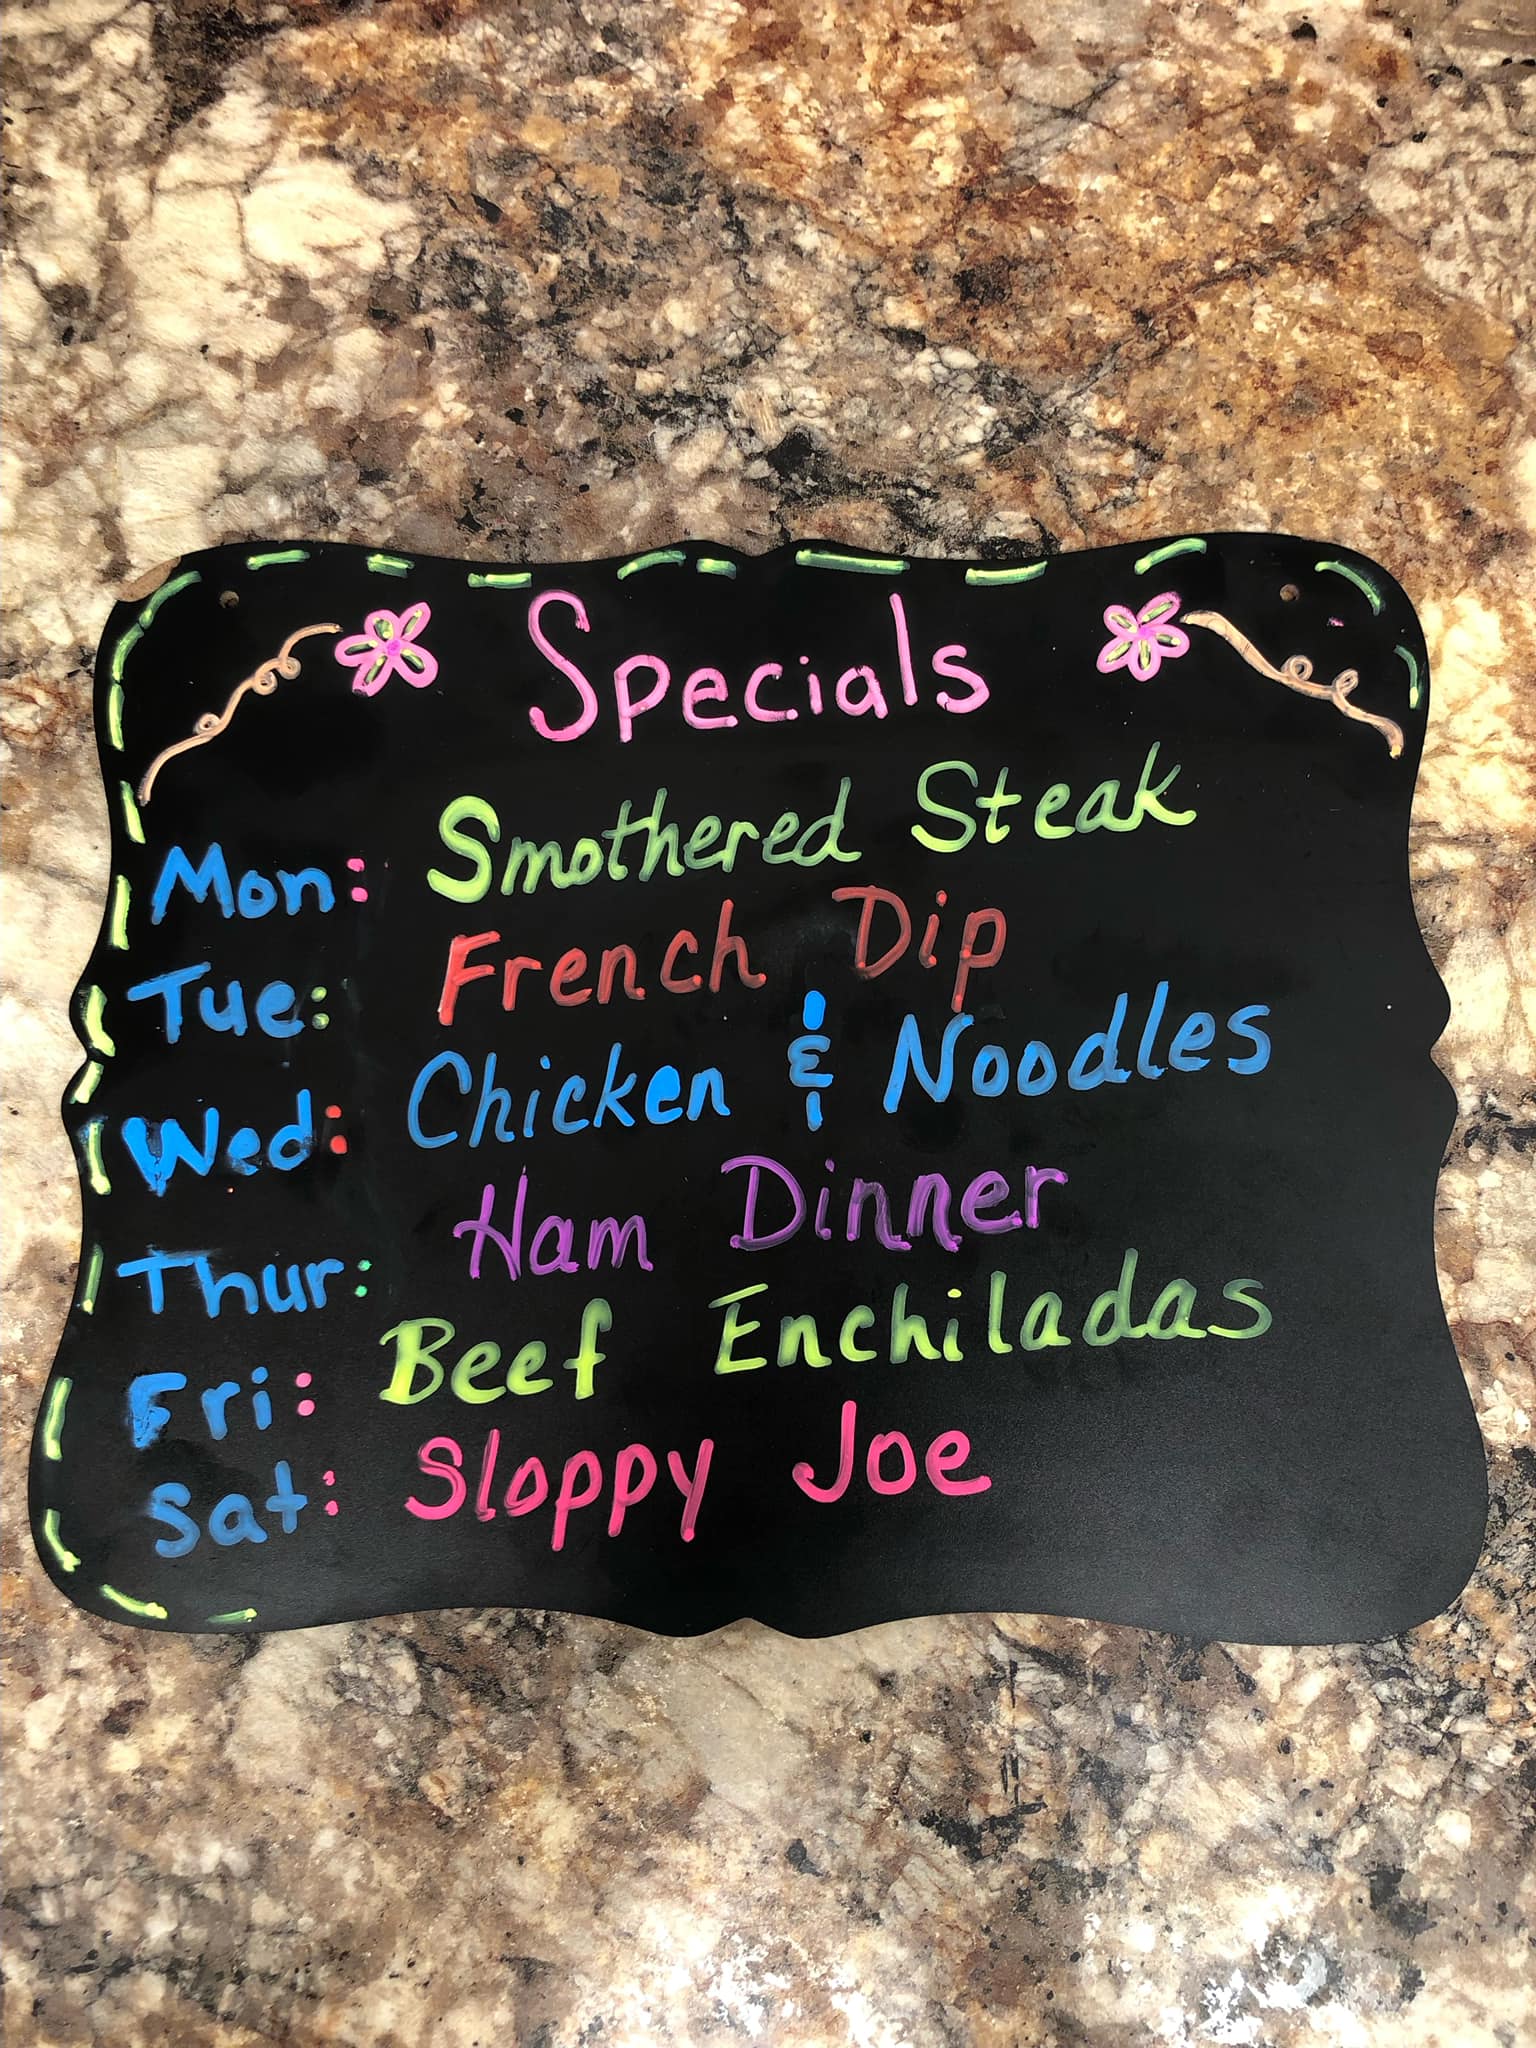 Specials
Mon: Smothered Steak
Tue: French Dip
Wed: Chicken & Noodles
Thur: Ham Dinner
Fri: Beef Enchiladas
Sat: Sloppy Joe